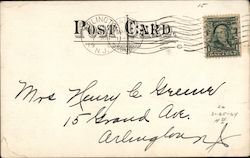 15
POST CARD.
Mrs Henry C. Greiner
15 Grand Ave.
Arlington N J